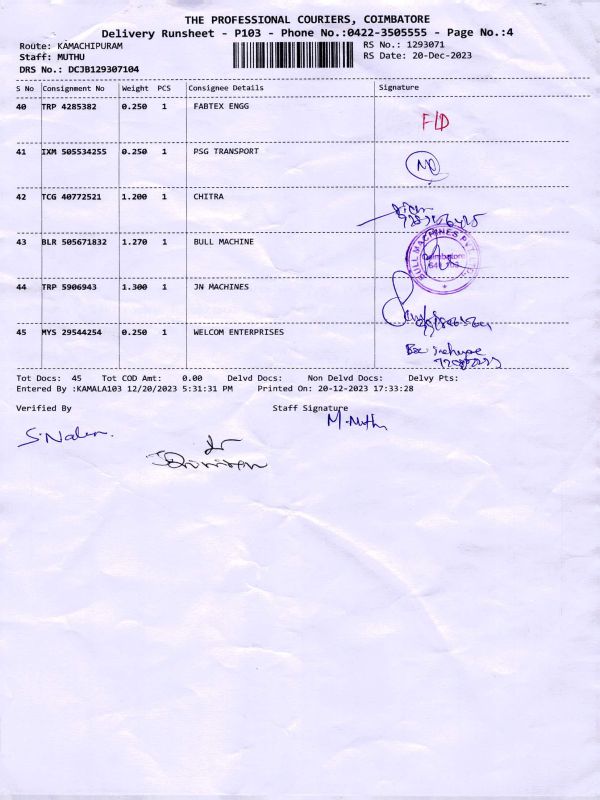 THE PROFESSIONAL COURIERS, COIMBATORE
Delivery Runsheet - P103 - Phone No.:0422-3505555 - Page No.:4
Route: KAMACHIPURAM RS No.: 1293071
Staff: MUTHU RS Date: 20-Dec-2023
DRS No.: DCJB129307104
S No Consignment No Weight PCS Consignee Details Signature
40 TRP 4285382 0.250 1 FABTEX ENGG
F/D
41 IXM 505534255 0.250 1 PSG TRANSPORT
42 TCG 40772521 1.200 1 CHITRA
43 BLR 505671832 1.270 1 BULL MACHINE
BULL MACHINES PVT. LTD.
Coimbatore
44 TRP 5906943 1.300 1 JN MACHINES
45 MYS 29544254 0.250 1 WELCOM ENTERPRISES
Tot Docs: 45 Tot COD Amt: 0.00 Delvd Docs: Non Delvd Docs: Delvy Pts:
Entered By :KAMALA103 12/20/2023 5:31:31 PM Printed On: 20-12-2023 17:33:28
Verified By Staff Signature
S. Nalen. M. Muthu